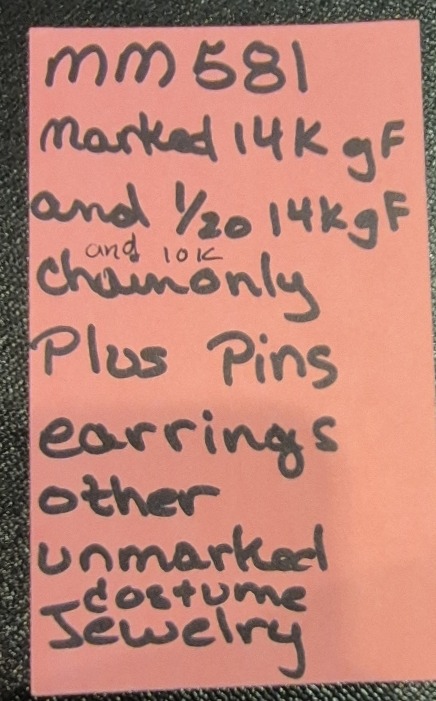 mm581
Marked 14K gF
and 1/20 14kgF
and 10K
chain only
Plus Pins
earrings
other
unmarked
costume
Jewelry